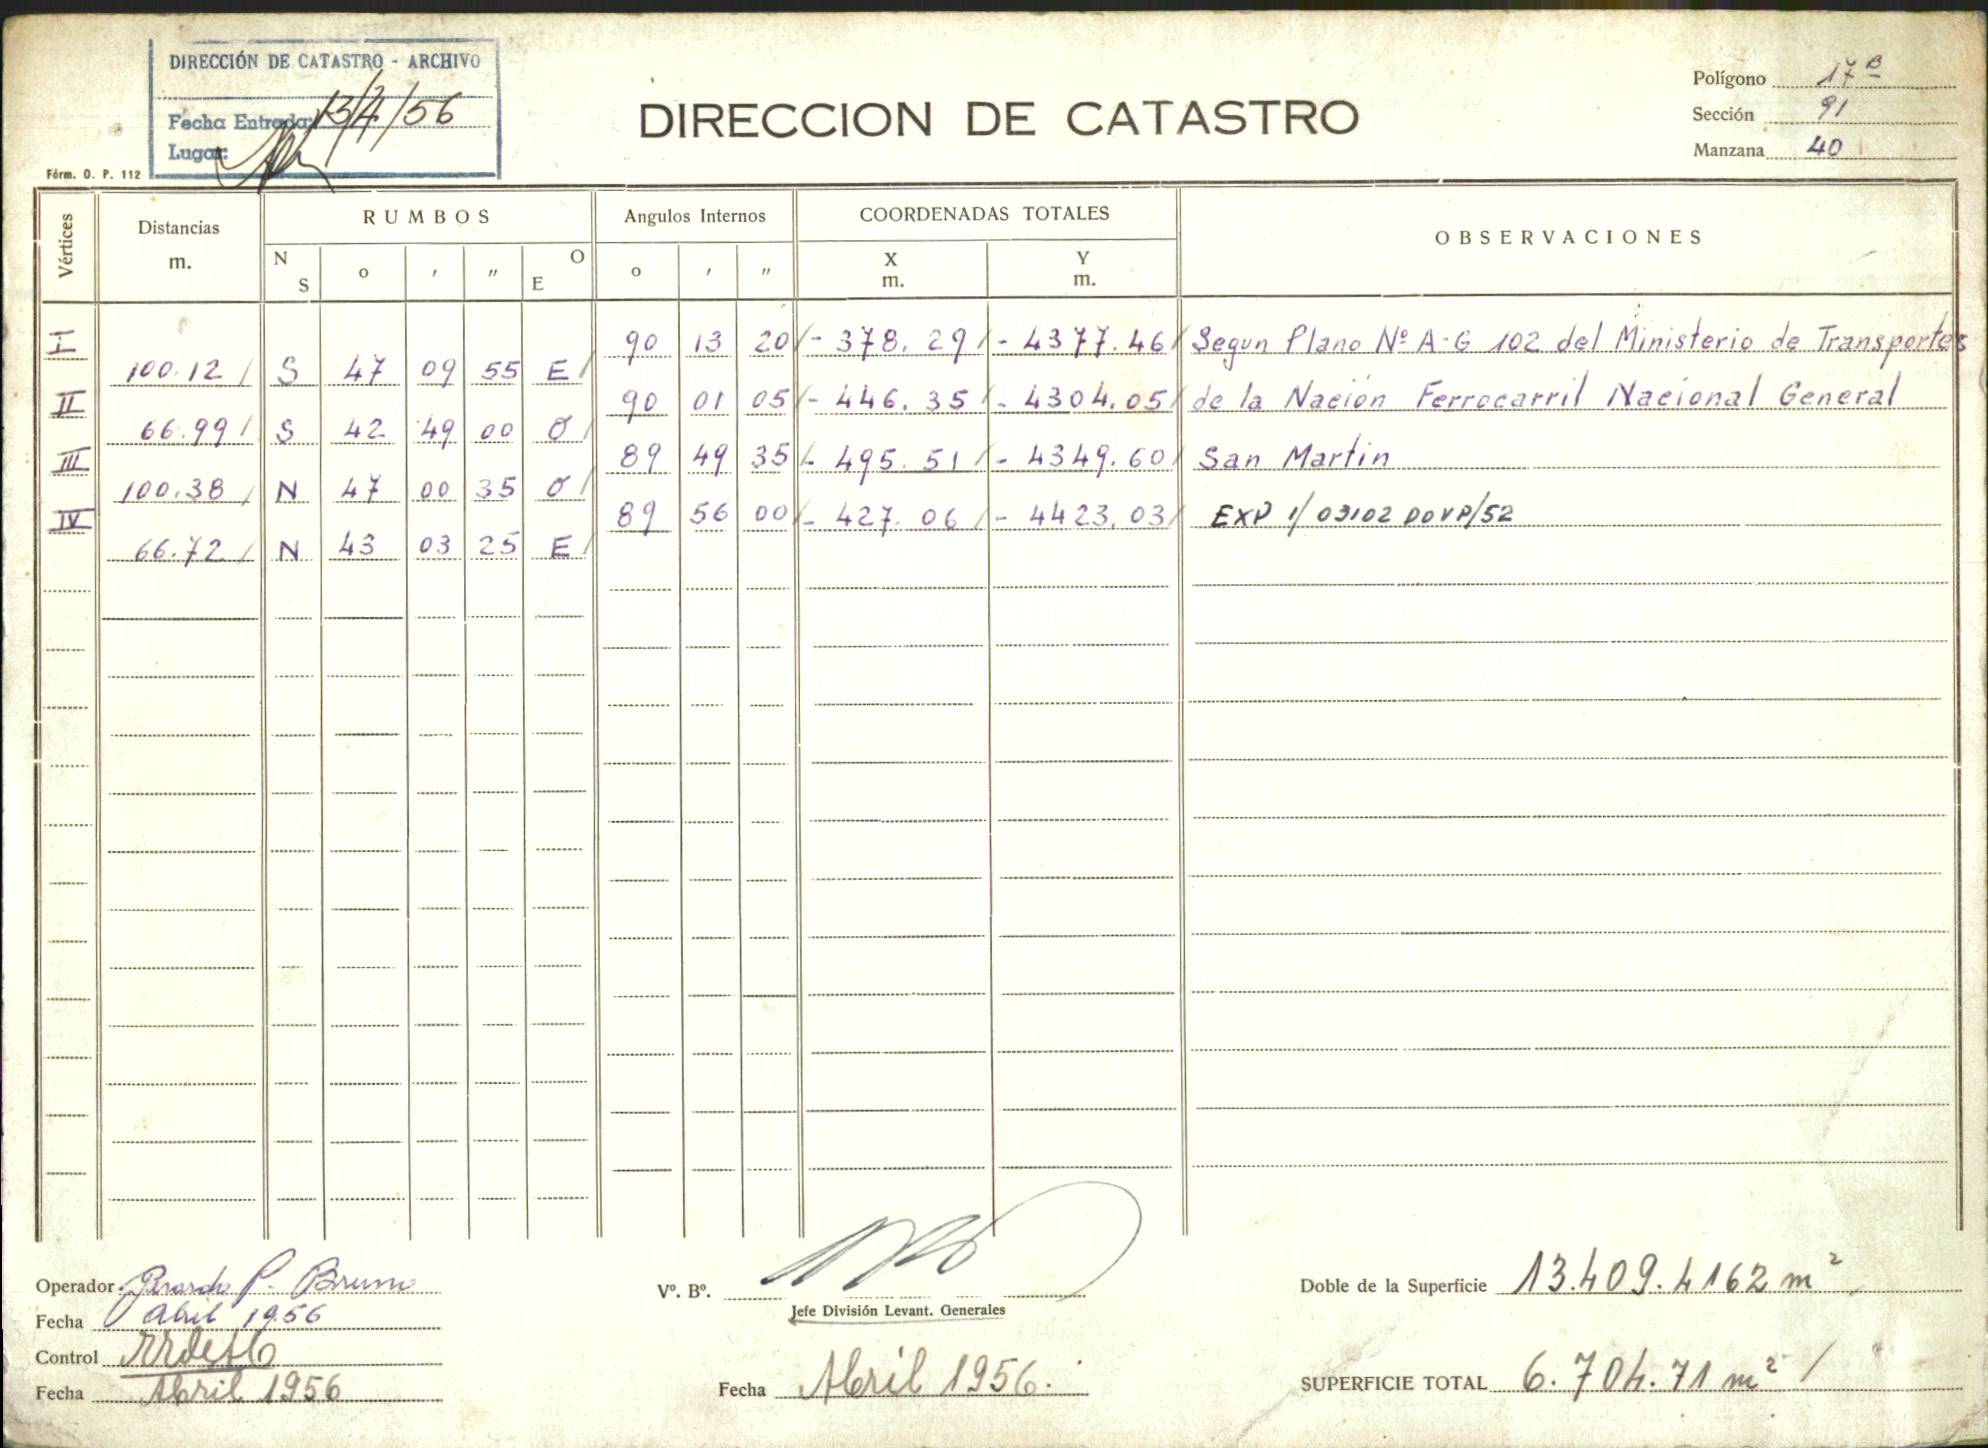 DIRECCIÓN DE CATASTRO - ARCHIVO
Fecha Entrada: 13/4/56
Lugar:
Fórm. O. P. 112
DIRECCION DE CATASTRO
Polígono 17 B
Sección 91
Manzana 40
Vértices Distancias m. RUMBOS Angulos Internos COORDENADAS TOTALES OBSERVACIONES
N S o ′ ″ O E o ′ ″ X m. Y m.
I 90 13 20 - 378.29 - 4377.46 Segun Plano Nº A-G 102 del Ministerio de Transportes
100.12 S 47 09 55 E
II 90 01 05 - 446.35 - 4304.05 de la Nación Ferrocarril Nacional General
66.99 S 42 49 00 O
III 89 49 35 - 495.51 - 4349.60 San Martin
100.38 N 47 00 35 O
IV 89 56 00 - 427.06 - 4423.03 EXP 1/03102 DOVP/52
66.72 N 43 03 25 E
Operador P. Bruno
Fecha Abril 1956
Control
Fecha Abril 1956
Vº. Bº.
Jefe División Levant. Generales
Fecha Abril 1956.
Doble de la Superficie 13.409.4162 m²
SUPERFICIE TOTAL 6.704.71 m²